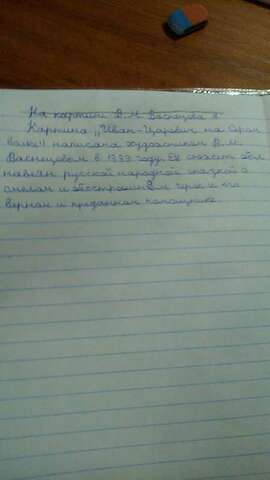 На картине В.М. Васнецова И
Картина „Иван-Царевич на Сером
Волке" написана художником В.М.
Васнецовым в году. Её сюжет был
навеян русской народной сказкой о
смелом и герое и его
верном и преданном помощнике.